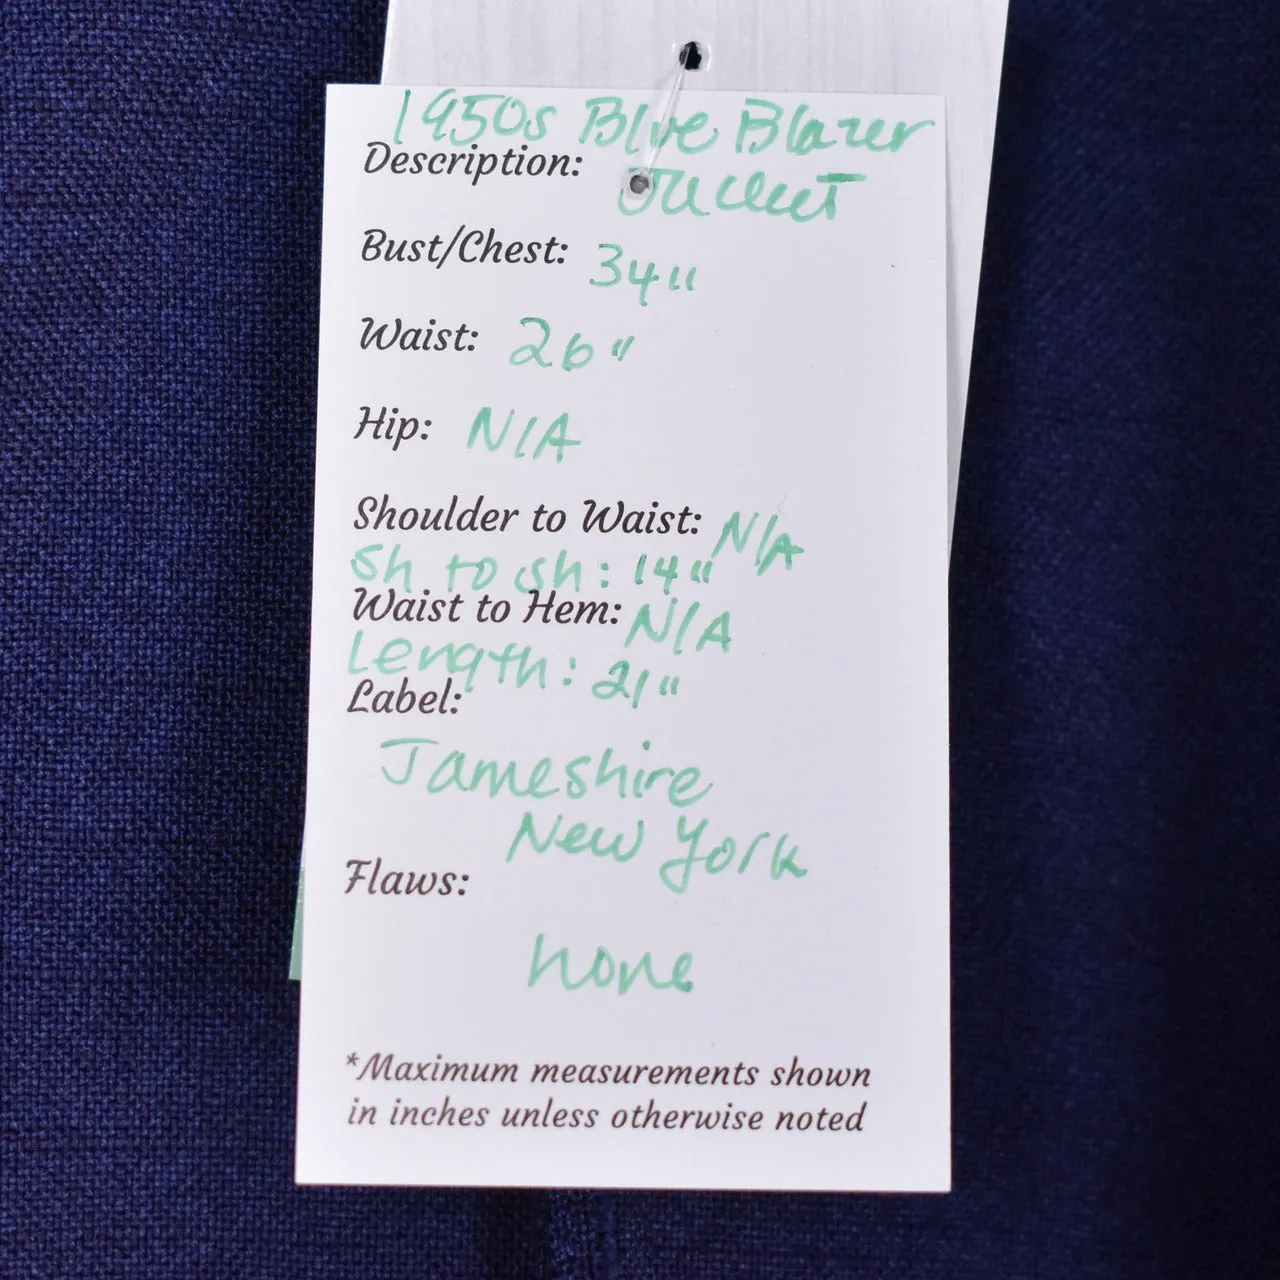 1950s Blue Blazer
Description: Jacket
Bust/Chest: 34"
Waist: 26"
Hip: N/A
Shoulder to Waist: N/A
Sh to sh: 14"
Waist to Hem: N/A
Length: 21"
Label:
Jameshire
New York
Flaws:
none
*Maximum measurements shown
in inches unless otherwise noted